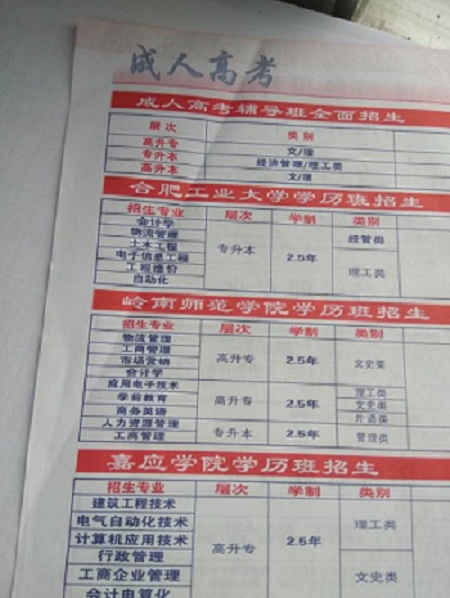 成人高考
成人高考辅导班全面招生
层次 类别
高升专 文/理
专升本 经济管理/理工类
高升本 文/理
合肥工业大学学历班招生
招生专业 层次 学制 类别
会计学
物流管理 经管类
土木工程
电子信息工程 专升本 2.5年
工程造价 理工类
自动化
岭南师范学院学历班招生
招生专业 层次 学制 类别
物流管理
工商管理
市场营销 高升专 2.5年 文史类
会计学
应用电子技术 理工类
学前教育 高升专 2.5年 文史类
商务英语 外语类
人力资源管理 专升本 2.5年 管理类
工商管理
嘉应学院学历班招生
招生专业 层次 学制 类别
建筑工程技术
电气自动化技术 理工类
计算机应用技术 高升专 2.5年
行政管理
工商企业管理 文史类
会计电算化